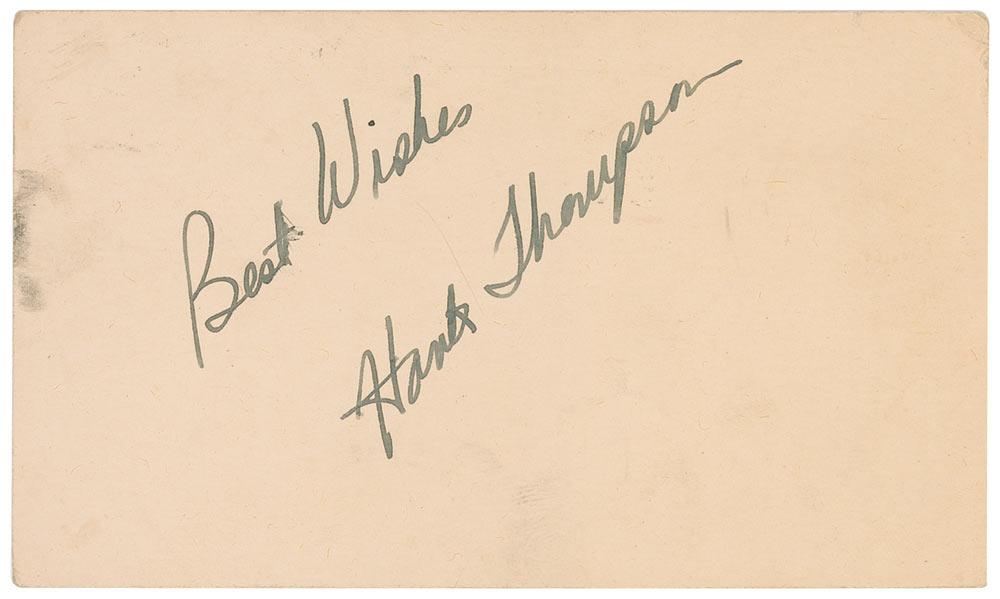 Best Wishes
Hank Thompson